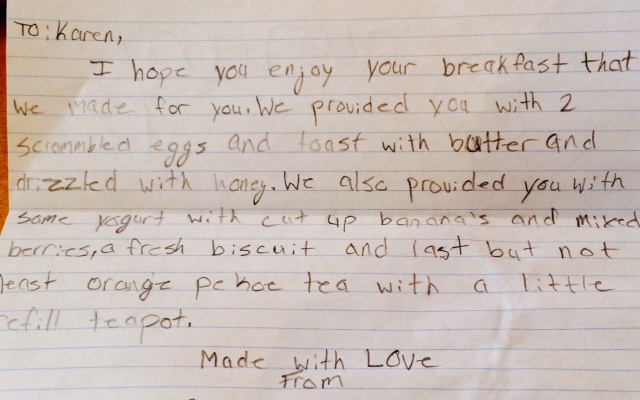 To: Karen,
I hope you enjoy your breakfast that
we made for you. We provided you with 2
scrommbled eggs and toast with butter and
drizzled with honey. We also provided you with
some yogurt with cut up banana's and mixed
berries, a fresh biscuit and last but not
least orange pekoe tea with a little
refill teapot.
Made with Love
From